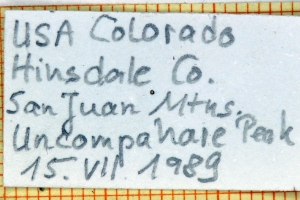 USA Colorado
Hinsdale Co.
San Juan Mtns.
Uncompahare Peak
15. VII. 1989